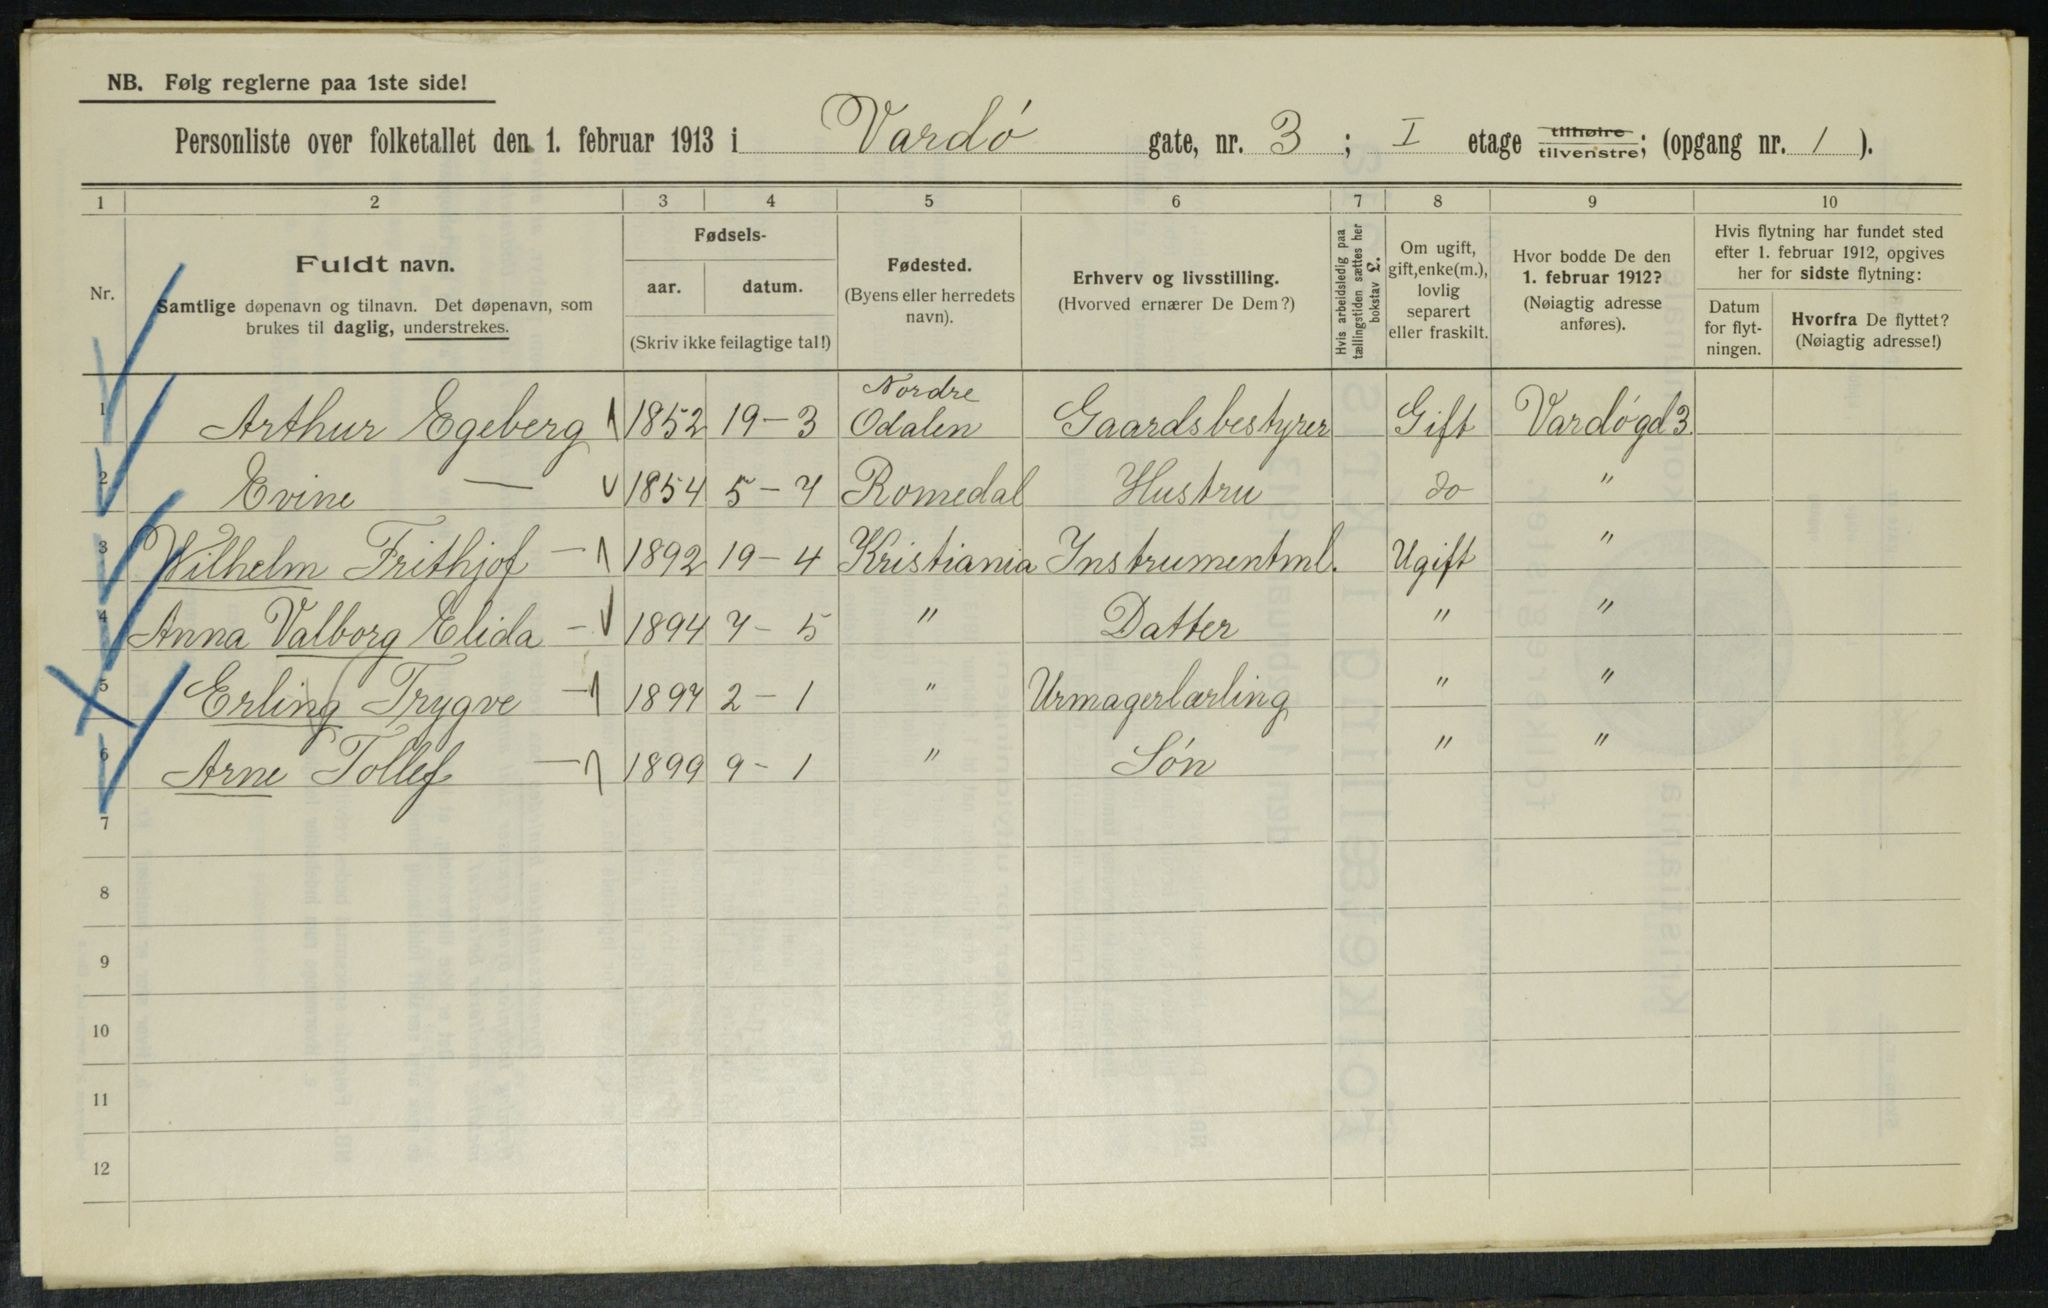 NB. Følg reglerne paa 1ste side!
Personliste over folketallet den 1. februar 1913 i Vardö gate, nr. 3 ; I etage tilhøire tilvenstre; (opgang nr. 1 ).
1 2 3 4 5 6 7 8 9 10
Nr.
Fuldt navn.
Samtlige døpenavn og tilnavn. Det døpenavn, som
brukes til daglig, understrekes.
Fødsels-
aar. datum.
(Skriv ikke feilagtige tal!)
Fødested.
(Byens eller herredets
navn).
Erhverv og livsstilling.
(Hvorved ernærer De Dem?)
Hvis arbeidsledig paa
tællingstiden sættes her
bokstav L.
Om ugift,
gift, enke(m.),
lovlig
separert
eller fraskilt.
Hvor bodde De den
1. februar 1912?
(Nøiagtig adresse
anføres).
Hvis flytning har fundet sted
efter 1. februar 1912, opgives
her for sidste flytning:
Datum
for flyt-
ningen.
Hvorfra De flyttet?
(Nøiagtig adresse!)
1 Arthur Egeberg 1852 19-3 Nordre Odalen Gaardsbestyrer Gift Vardögd 3
2 Evine — 1854 5-7 Romedal Hustru do "
3 Wilhelm Frithjof — 1892 19-4 Kristiania Instrumentml. Ugift "
4 Anna Valborg Elida — 1894 7-5 " Datter " "
5 Erling Trygve — 1897 2-1 " Urmagerlærling " "
6 Arne Tollef — 1899 9-1 " Sön " "
7
8
9
10
11
12